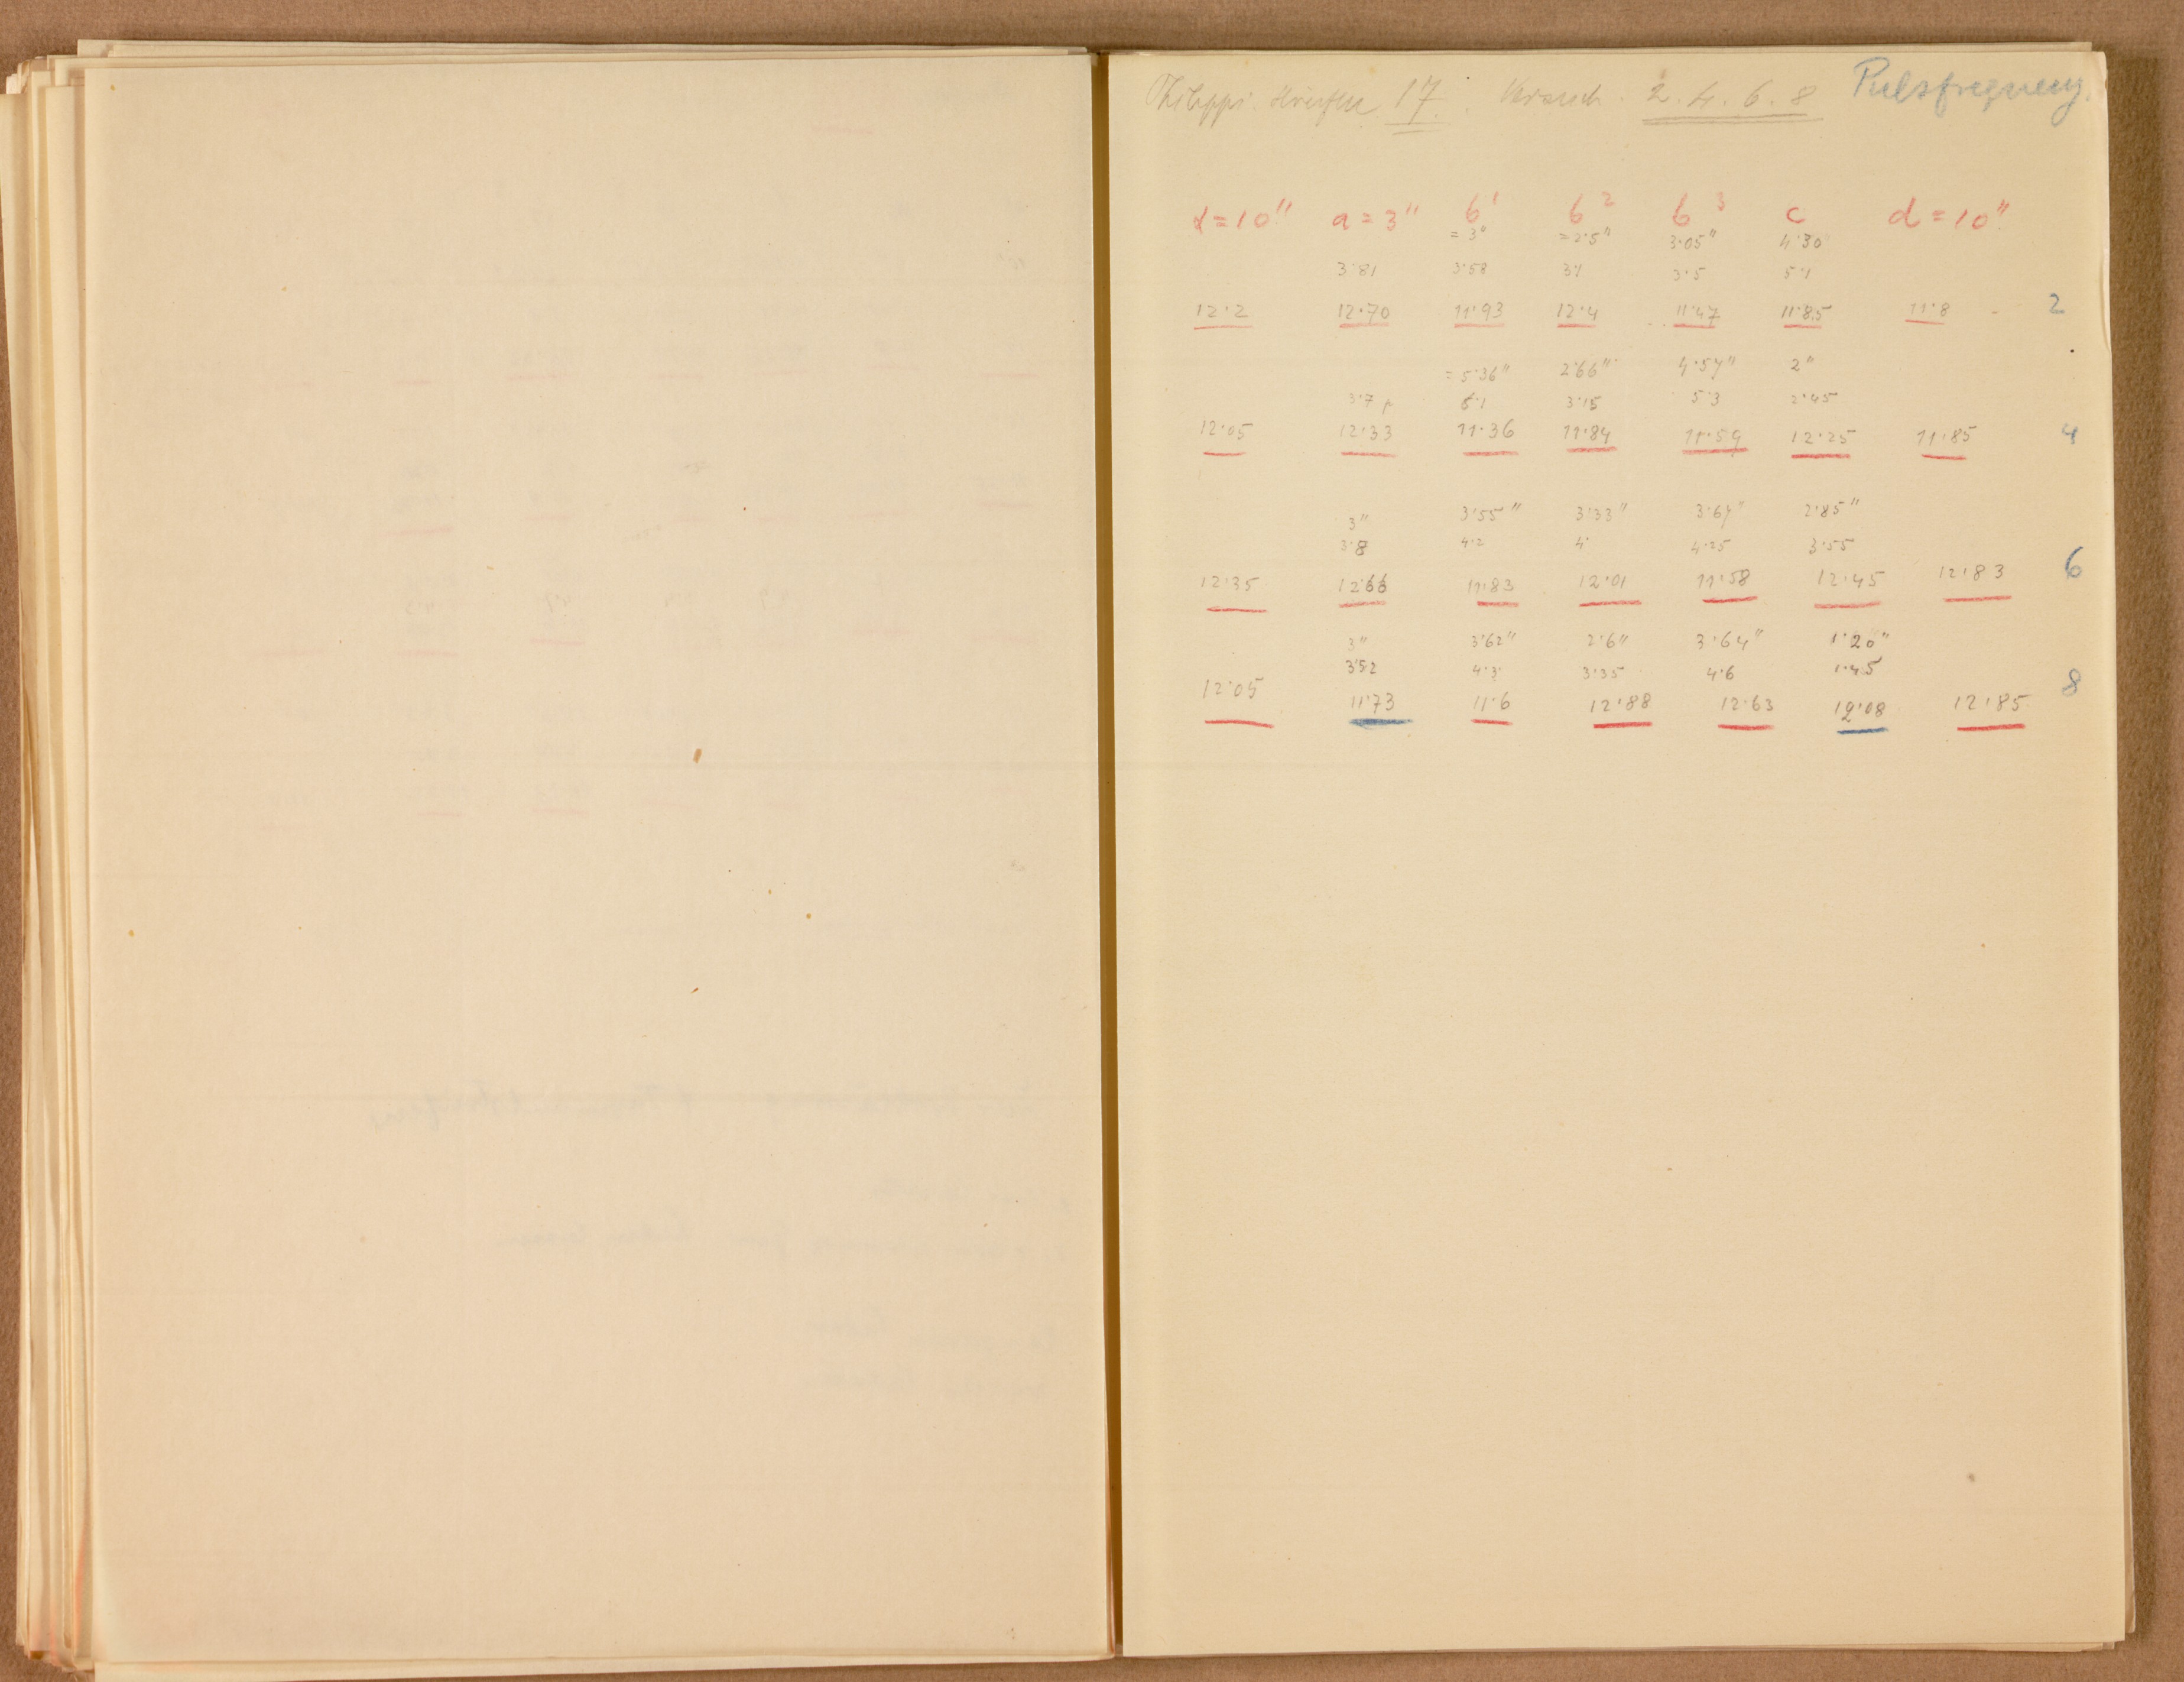 Philippi 17. Versuch. 2. 4. 6. 8 Pulsfrequenz.
α=10" a=3" b¹ b² b³ c d=10"
=3" =2·5" 3·05" 4·30
3·81 3·58 3·1 3·5 5·1
12·2 12·70 11·93 12·4 11·47 11·85 11·8 2
=5·36" 2·66" 4·57" 2"
3·7 6·1 3·15 5·3 2·45
12·05 12·33 11·36 11·84 11·59 12·25 11·85 4
3" 3·55" 3·33" 3·67" 2·85"
3·8 4·2 4· 4·25 3·55
12·35 12·66 11·83 12·01 11·58 12·45 12·83 6
3" 3·62" 2·6" 3·64" 1·20"
3·52 4·3 3·35 4·6 1·45
12·05 11·73 11·6 12·88 12·63 12·08 12·85 8